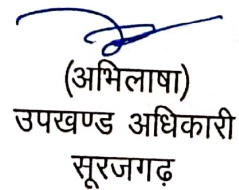 (अभिलाषा)
उपखण्ड अधिकारी
सूरजगढ़